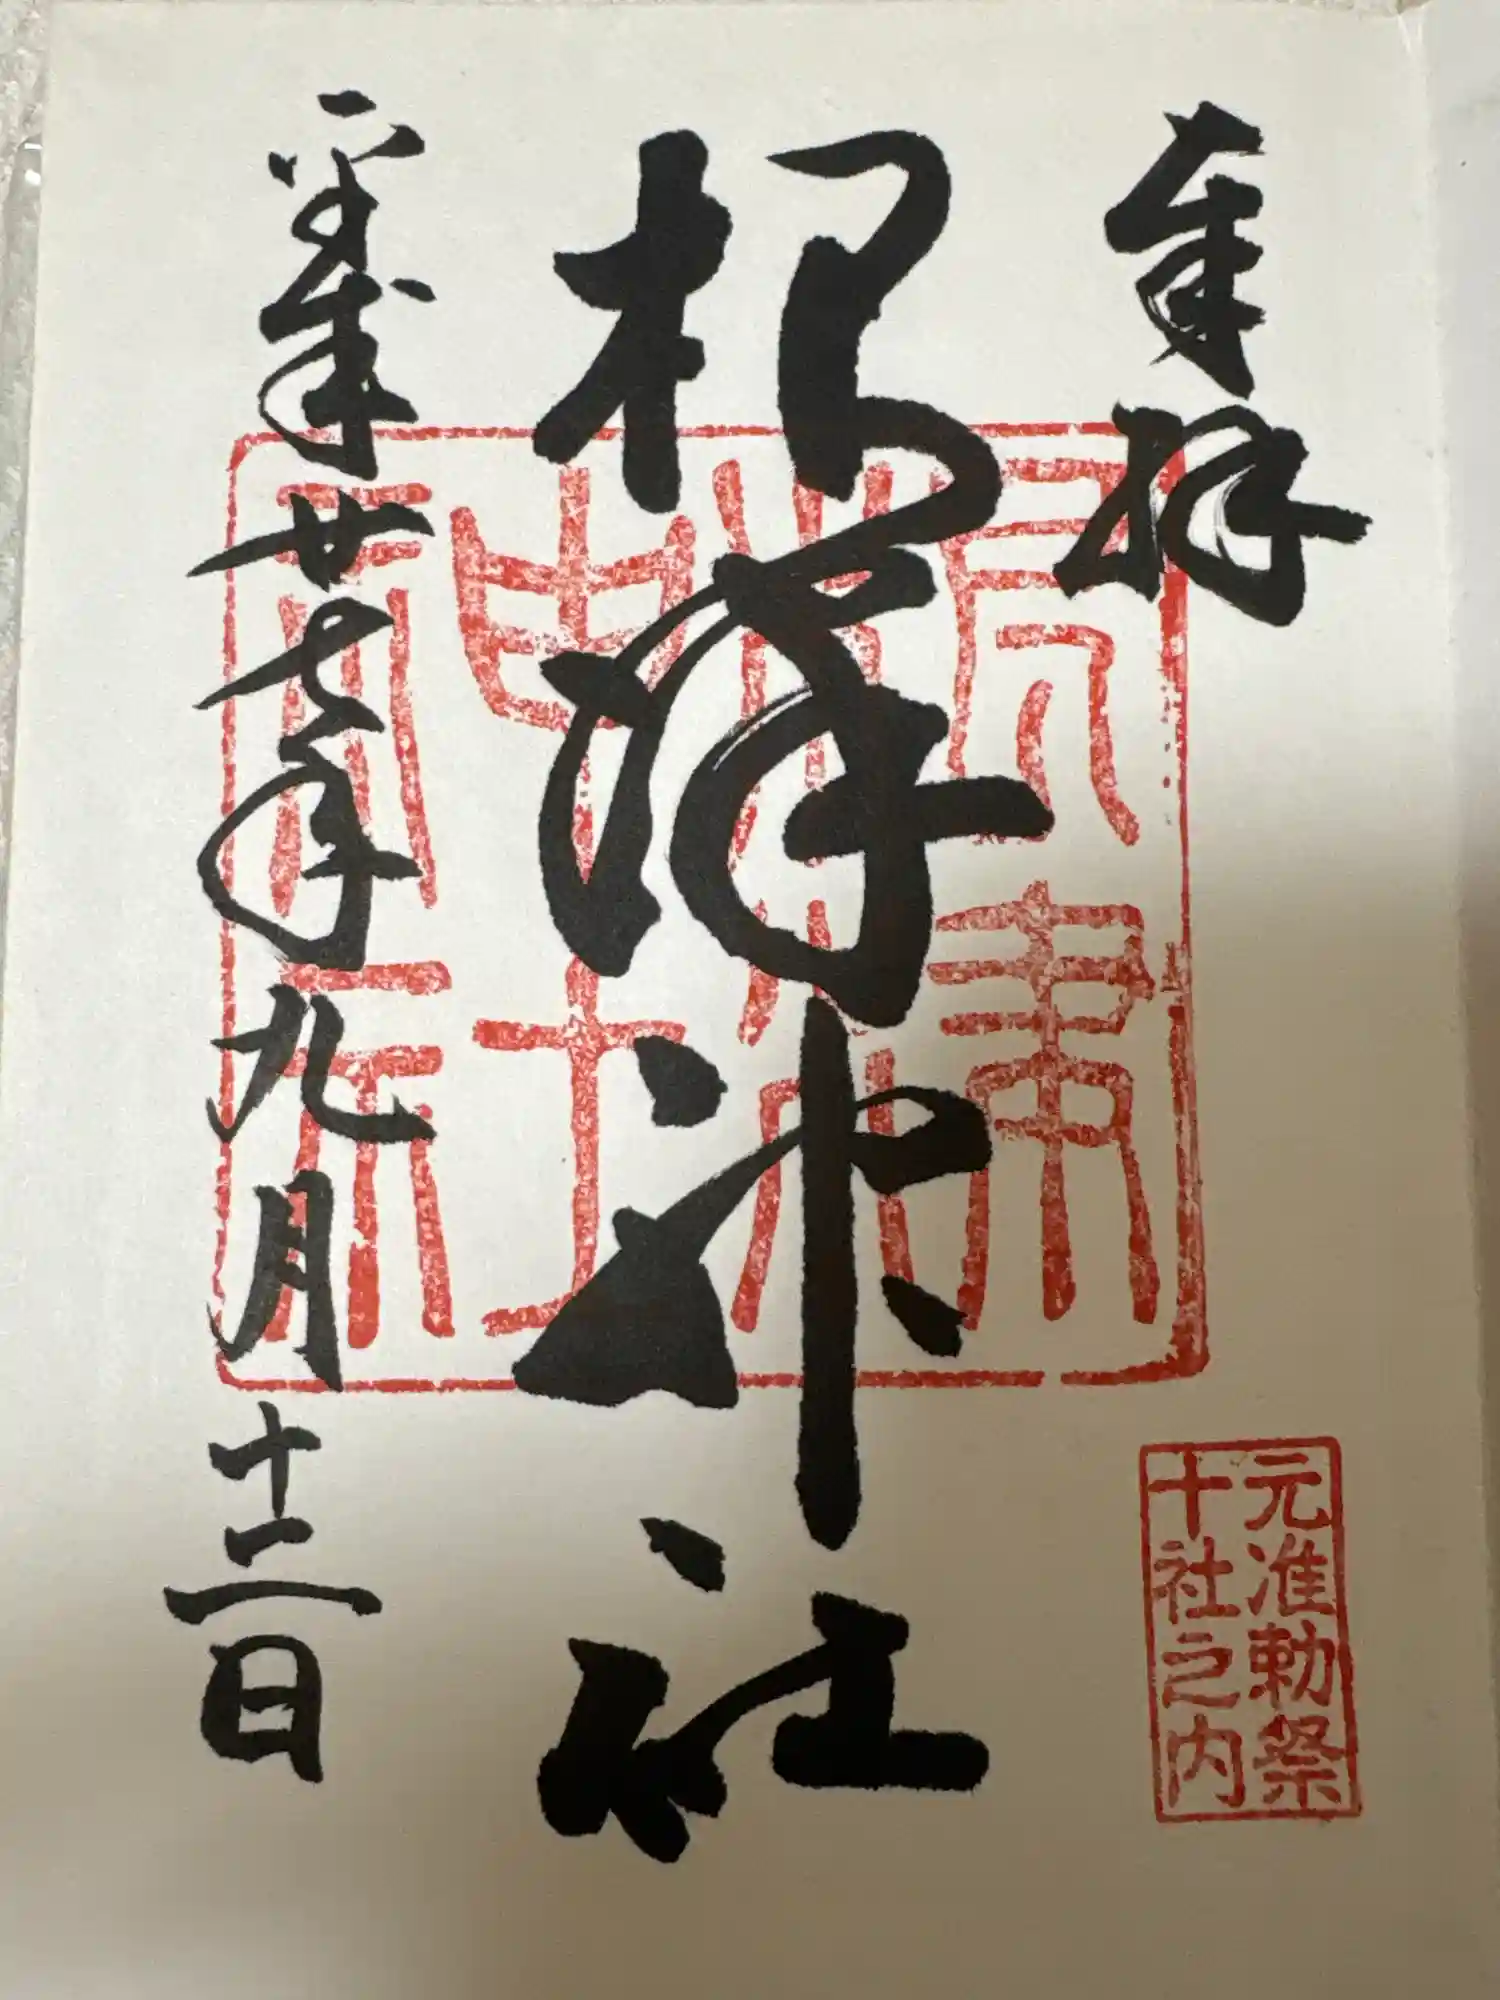 奉拝
元准勅祭
十社之内
根津神社
根津神社
平成廿七年九月十二日